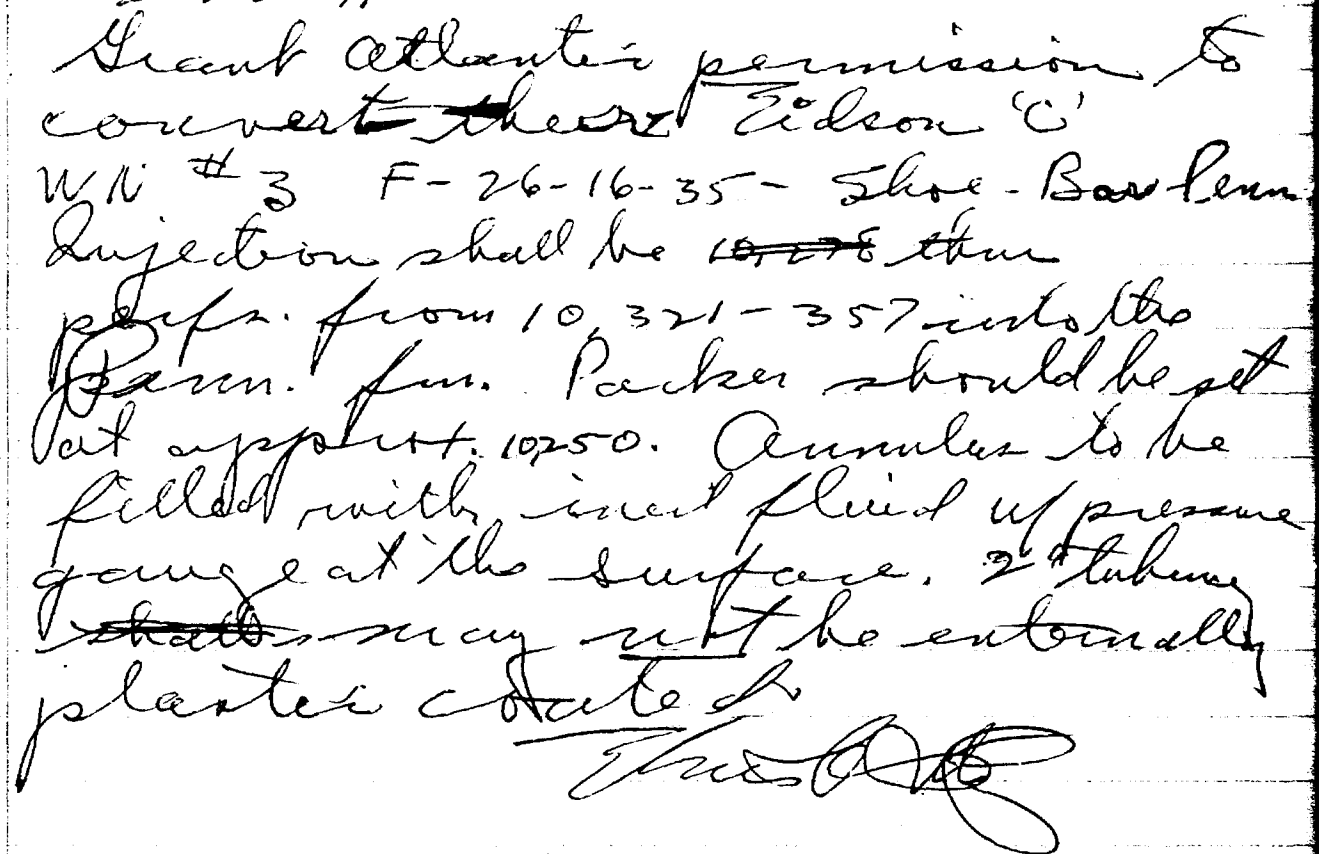 Grant Atlantic permission to
convert their Eidson 'C'
WN # 3 F-26-16-35 - Shoe-Bar Penn.
Injection shall be thru
perfs. from 10,321-357 into the
Penn. fm. Packer should be set
at approx. 10,250. Annulus to be
filled with inert fluid w/ pressure
gauge at the surface. 2" tubing
shall may not be internally
plastic coated